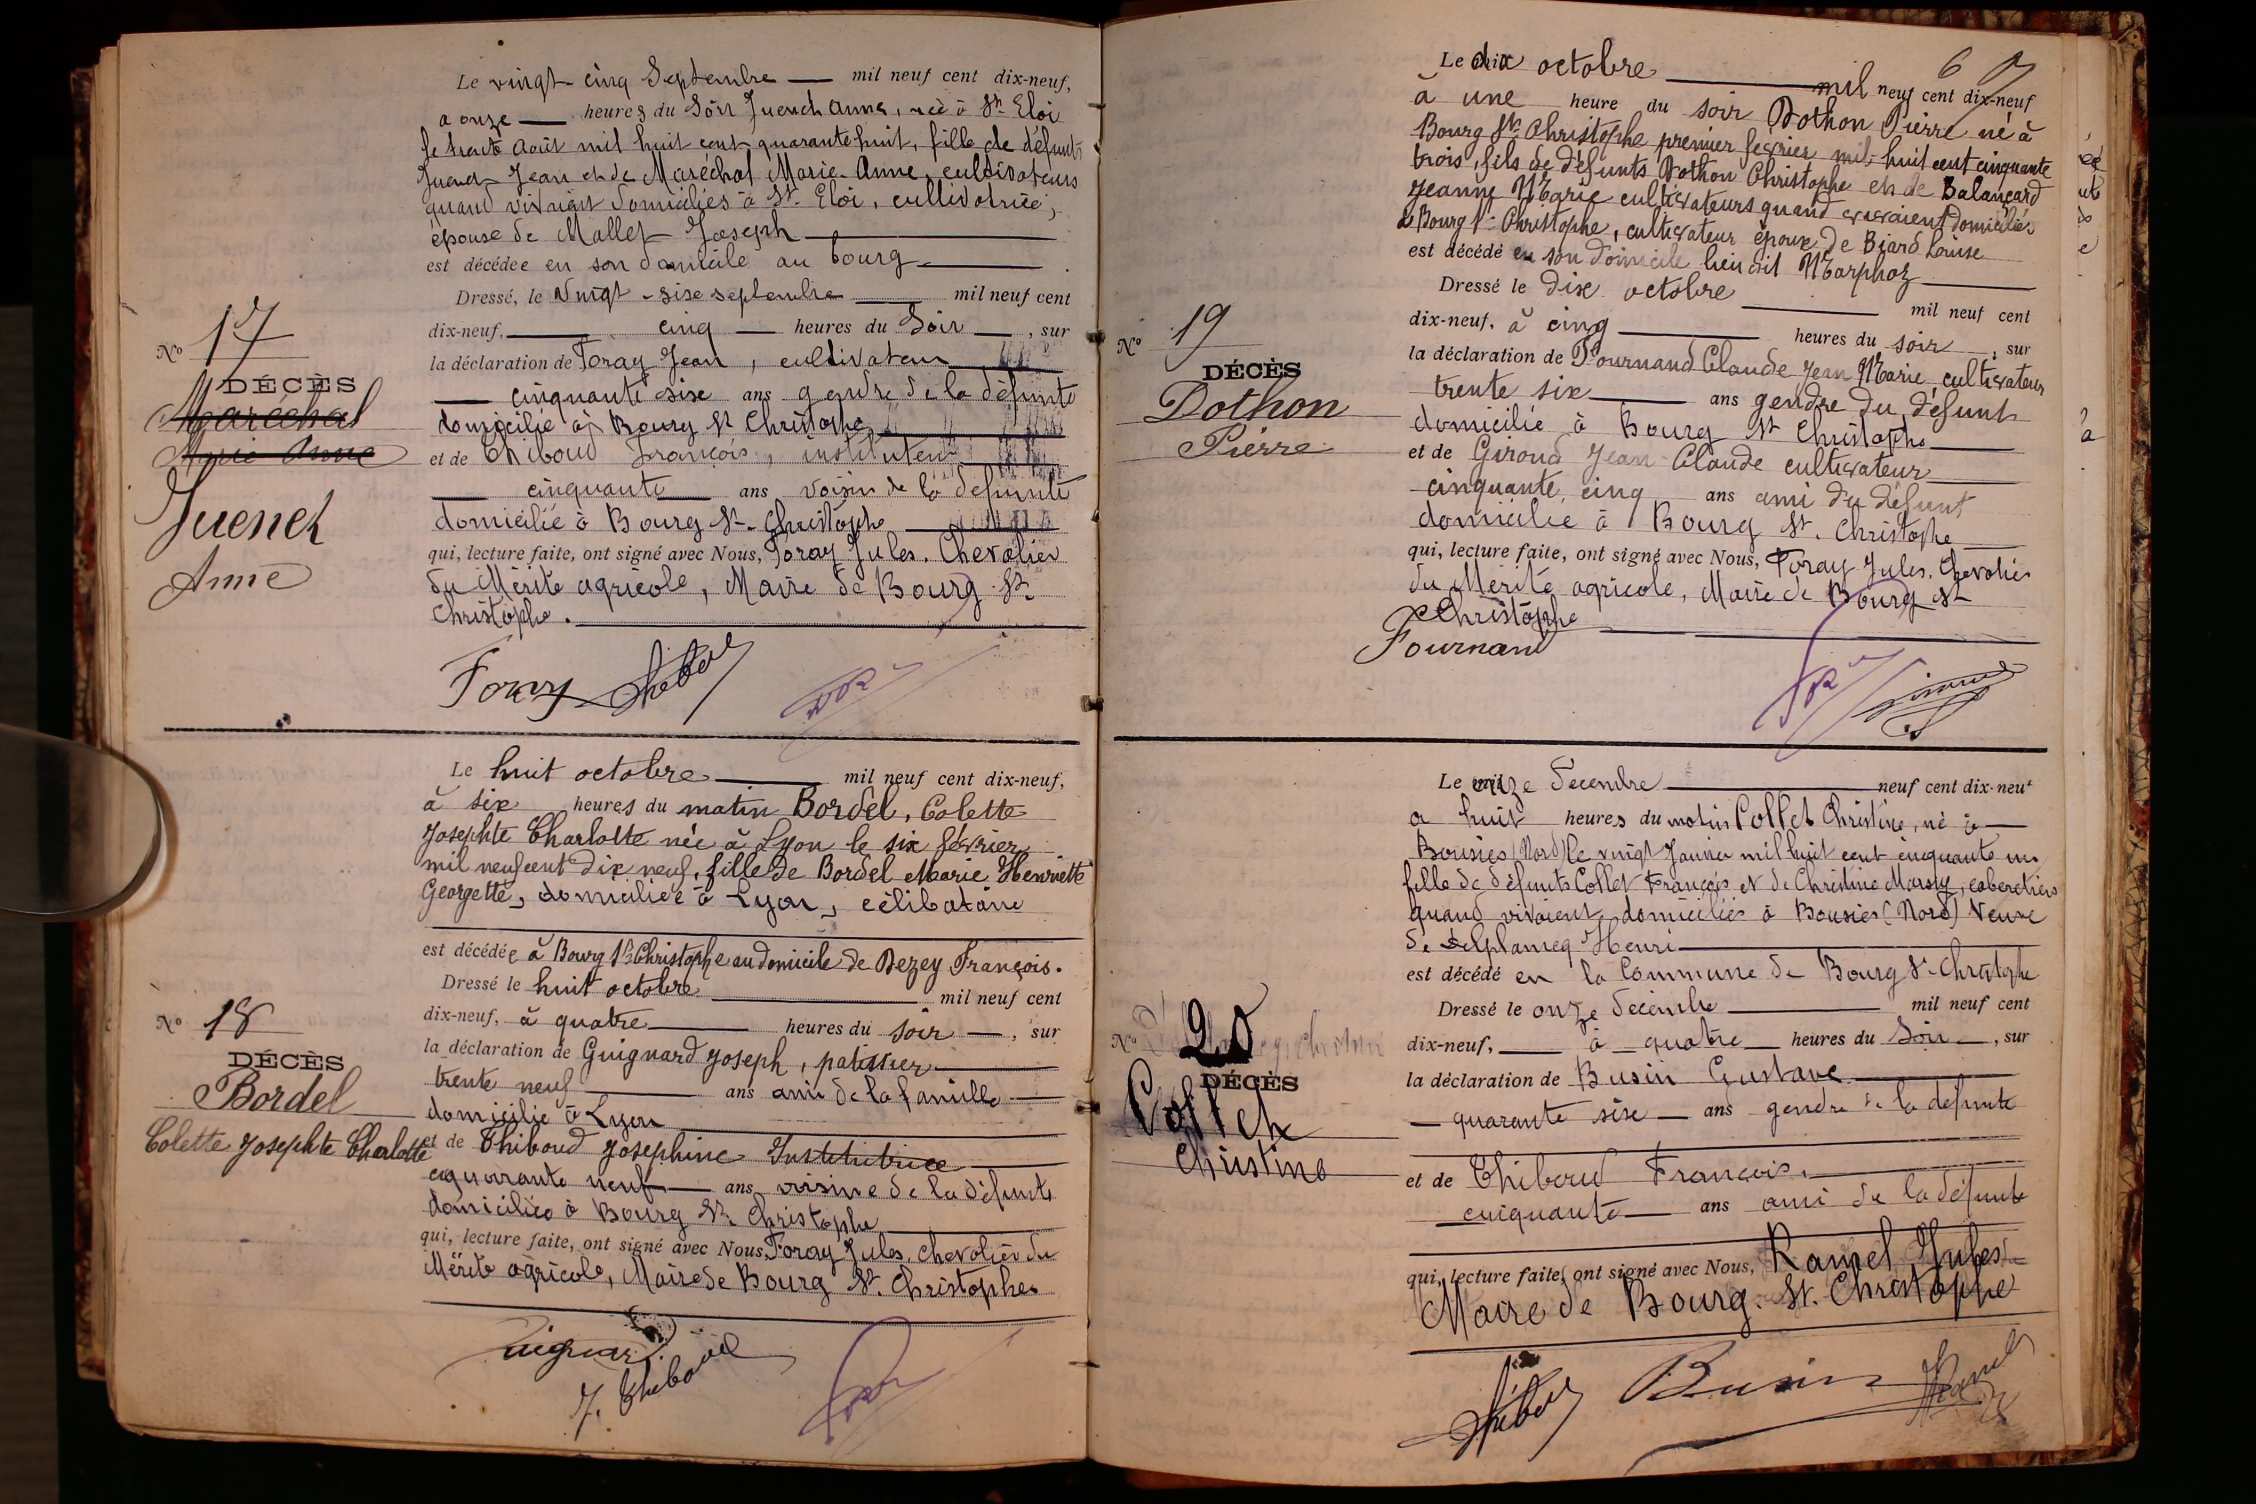 Le vingt-cinq Septembre — mil neuf cent dix-neuf,
a onze — heures du Soir Juenet Anne, née à St Eloi
le trente Août mil huit cent quarante huit, fille de défunts
Juenet Jean et de Maréchal Marie-Anne, cultivateurs
quand vivaient domiciliés à St Eloi, cultivatrice,
épouse de Mallet Joseph
est décédée en son domicile au bourg
Dressé, le Vingt-six septembre mil neuf cent
dix-neuf, cinq — heures du Soir —, sur
la déclaration de Foray Jean, cultivateur
— cinquante-six ans gendre de la défunte
domicilié à Bourg St Christophe
et de Thiboud François, instituteur
— cinquante — ans voisin de la défunte
domicilié à Bourg St-Christophe
qui, lecture faite, ont signé avec Nous, Foray Jules, Chevalier
du Mérite agricole, Maire de Bourg St
Christophe.
No 17
DÉCÈS
Maréchal
Marie Anne
Juenet
Anne
Foray Thiboud
Le huit octobre mil neuf cent dix-neuf,
à six heures du matin Bordel, Colette
Josephte Charlotte née à Lyon le six février
mil neuf cent dix neuf, fille de Bordel Marie Henriette
Georgette, domiciliée à Lyon, célibataire
est décédée à Bourg St Christophe au domicile de Dezey François.
Dressé le huit octobre mil neuf cent
dix-neuf, à quatre heures du soir —, sur
la déclaration de Guignard Joseph, patissier
trente neuf ans ami de la famille
domicilié à Lyon
et de Thiboud Josephine Institutrice
quarante neuf — ans voisine de la défunte
domiciliée à Bourg St Christophe
qui, lecture faite, ont signé avec Nous, Foray Jules, chevalier du
Mérite agricole, Maire de Bourg St. Christophe.
No 18
DÉCÈS
Bordel
Colette Josephte Charlotte
Guignard
J. Thiboud
67
Le dix octobre mil neuf cent dix-neuf
à une heure du soir Dothon Pierre né à
Bourg St Christophe premier février mil huit cent cinquante
trois, fils de défunts Dothon Christophe et de Balançard
Jeanne Marie cultivateurs quand vivaient domiciliés
à Bourg St Christophe, cultivateur époux de Biard Louise
est décédé en son domicile lieu dit Marphoz
Dressé le dix octobre mil neuf cent
dix-neuf, à cinq heures du soir, sur
la déclaration de Fournand Claude Jean Marie, cultivateur
trente six ans gendre du défunt
domicilié à Bourg St Christophe
et de Giroud Jean-Claude cultivateur
cinquante cinq ans ami du défunt
domicilié à Bourg St. Christophe
qui, lecture faite, ont signé avec Nous, Foray Jules, Chevalier
du Mérite agricole, Maire de Bourg St
Christophe
No 19
DÉCÈS
Dothon
Pierre
Fournand
Giroud
Le onze Décembre neuf cent dix-neuf
a huit heures du matin Collet Christine, né à
Bousies (Nord) le vingt Janvier mil huit cent cinquante un
fille de défunts Collet François et de Christine Marsy, cabaretiers
quand vivaient, domiciliés à Bousies (Nord) Veuve
de Delplancq Henri
est décédé en la Commune de Bourg St-Christophe
Dressé le onze Décembre mil neuf cent
dix-neuf, — à quatre — heures du Soir —, sur
la déclaration de Busin Gustave
— quarante six — ans gendre de la défunte
et de Thiboud François.
cinquante — ans ami de la défunte
qui, lecture faite, ont signé avec Nous, Ramel Jules
Maire de Bourg. St. Christophe
No 20
DÉCÈS
Collet
Christine
Thiboud Busin Ramel